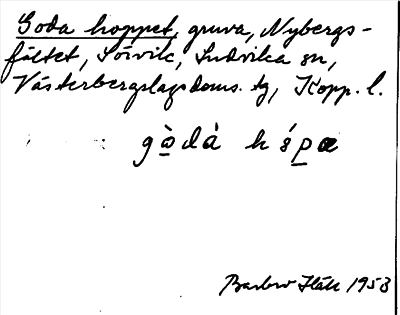 Goda hoppet, gruva, Nybergs-
fältet, Sörvik, Ludvika sn,
Västerbergslags doms. tg, Kopp. l.
gòdà hópæ
1953